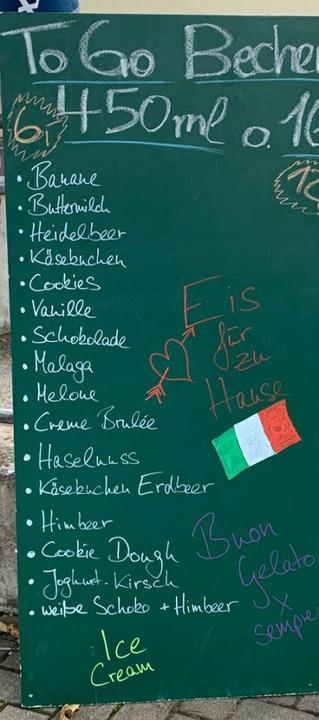 To Go Becher
6,
450ml o. 10
12
• Banane
• Buttermilch
• Heidelbeer
• Käsekuchen
• Cookies
• Vanille
• Schokolade
• Malaga
• Melone
• Creme Brulée
• Haselnuss
• Käsekuchen Erdbeer
• Himbeer
• Cookie Dough
• Joghurt-Kirsch
• weiße Schoko + Himbeer
Eis
für
zu
Hause
Buon
Gelato
x
sempre
Ice
Cream